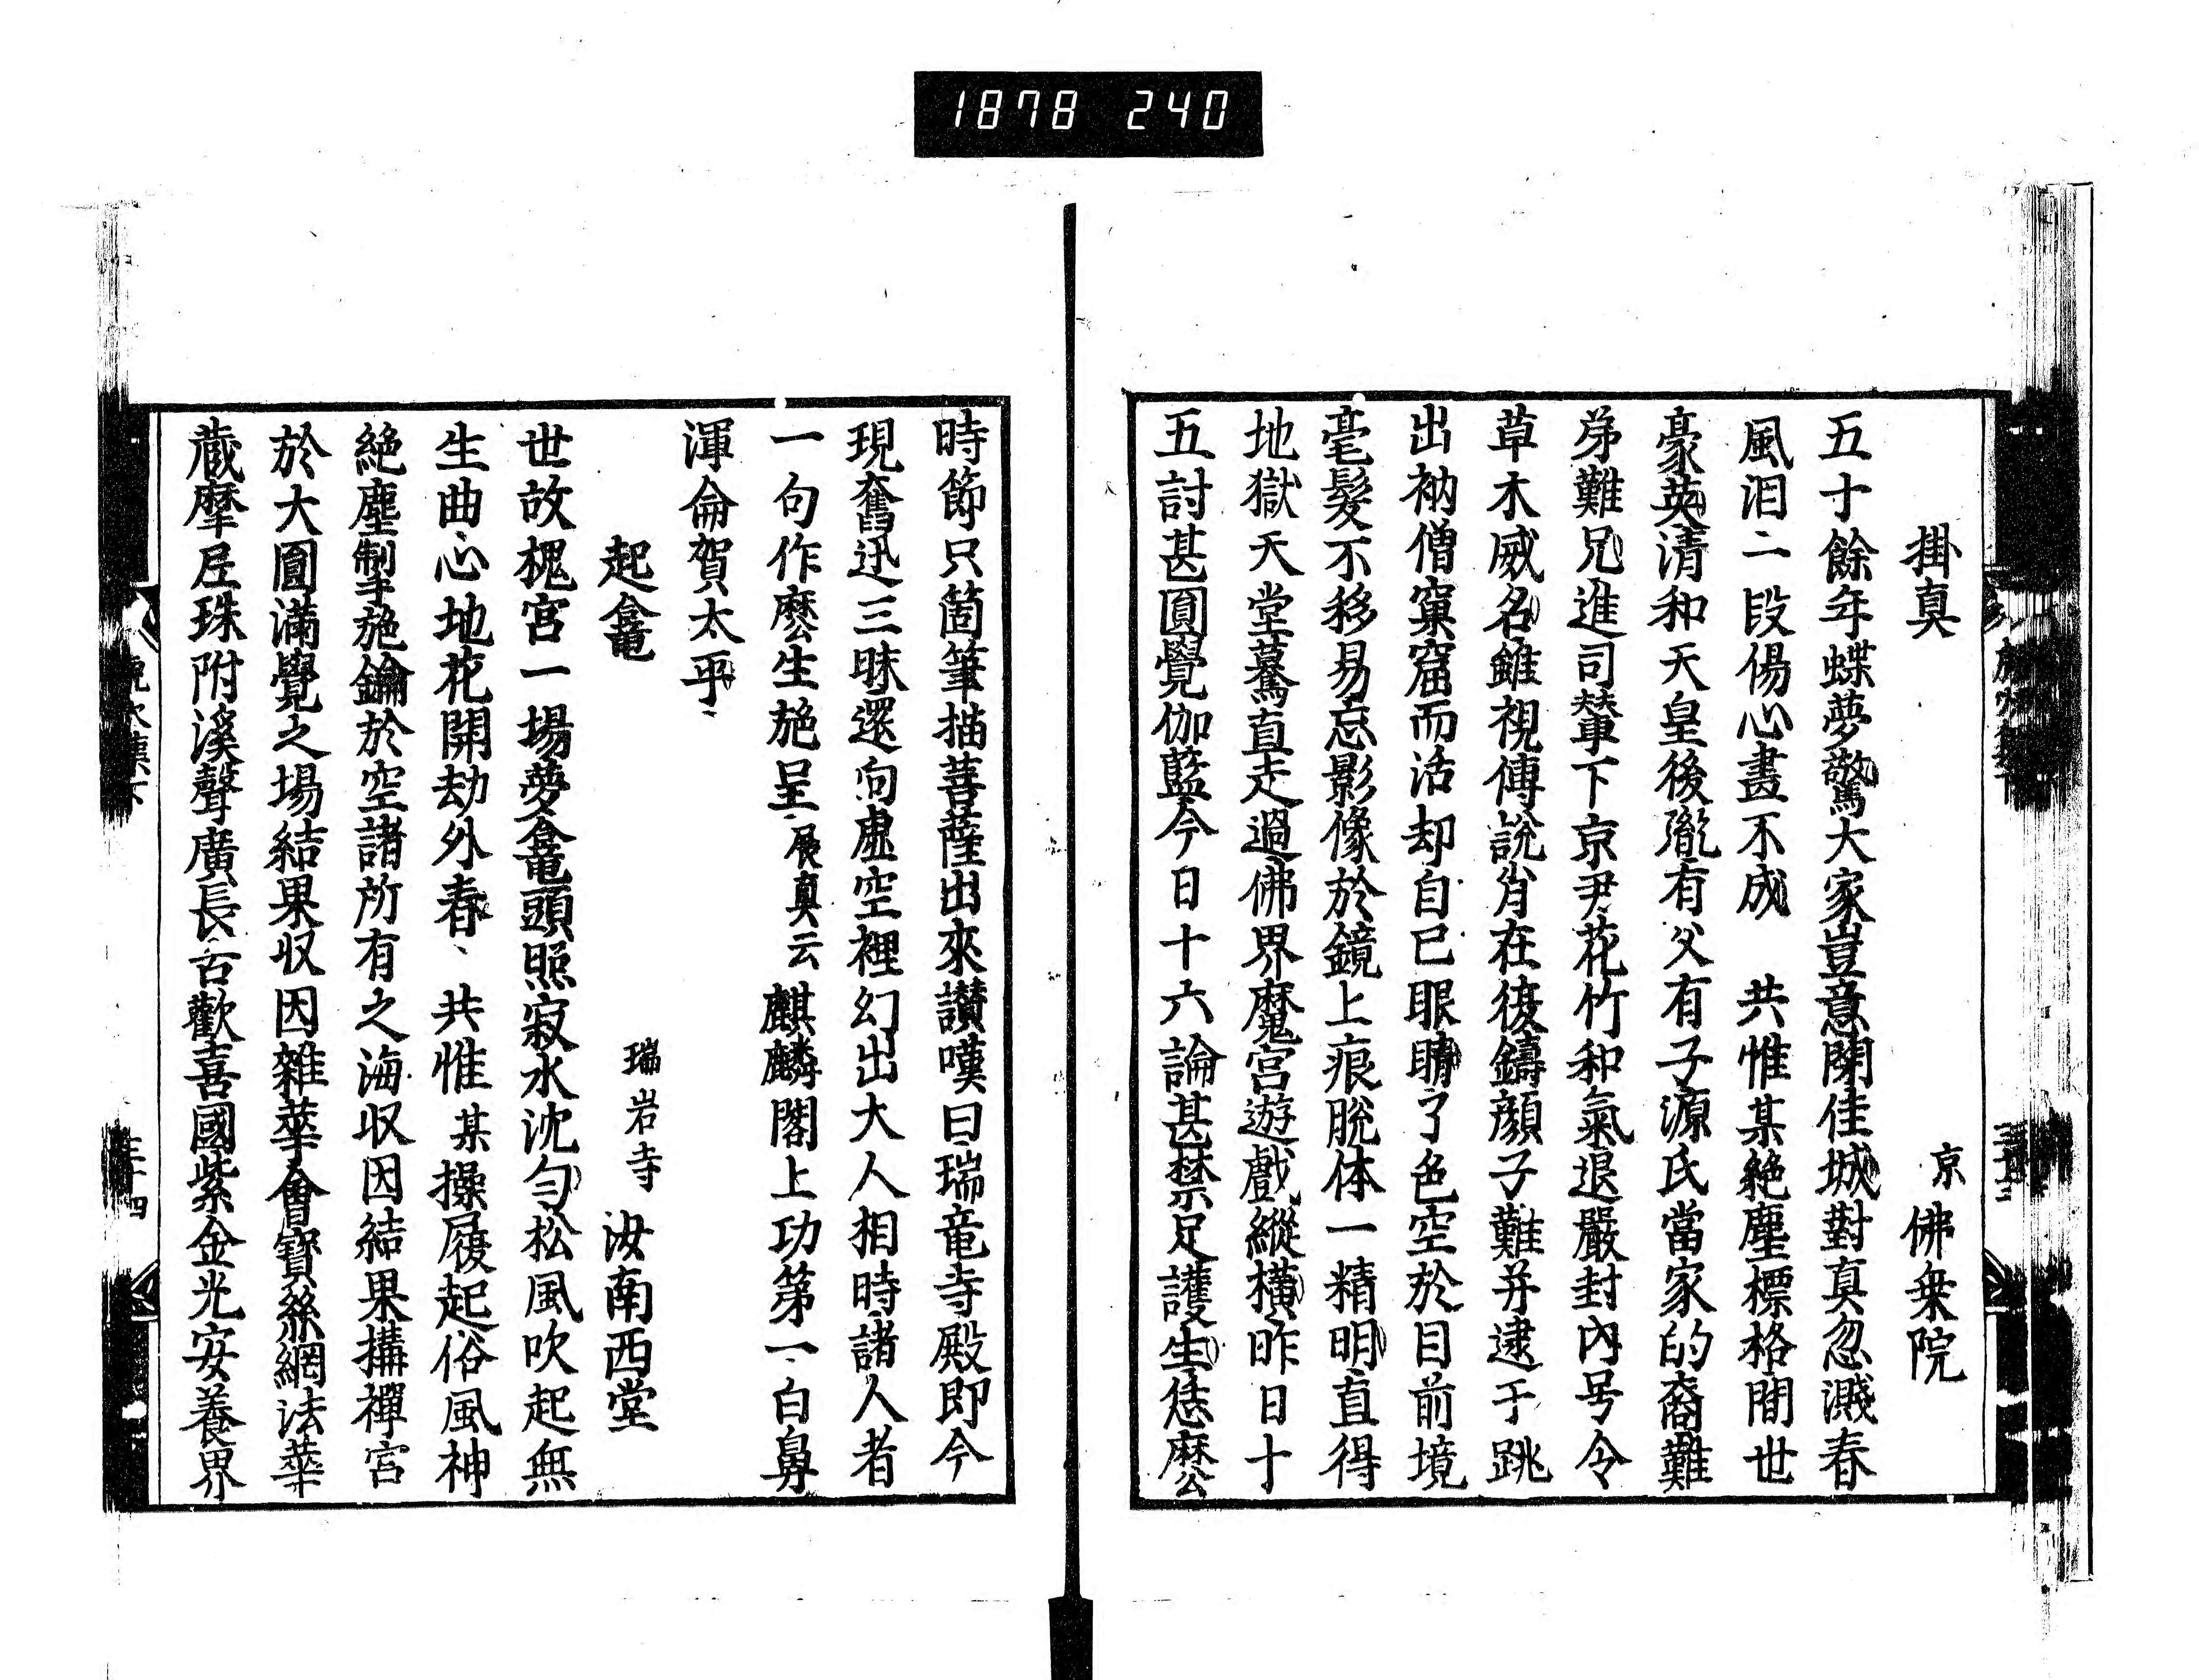 1878 240
掛真　京　佛乗院
五十餘年蝶夢驚大家豈意閉佳城對真忽濺春
風泪二段傷心畫不成　共惟某絶塵標格間世
豪英清和天皇後胤有父有子源氏當家的裔難
弟難兄進司輦下京尹花竹和氣退嚴封內号令
草木威名雖視傅說肖在復鑄顔子難并逮于跳
出衲僧窠窟而活却自已眼睛了色空於目前境
毫髮不移易忘影像於鏡上痕脫体一精明直得
地獄天堂驀直走過佛界魔宮遊戲縱橫昨日十
五討甚圓覺伽藍今日十六論甚禁足護生恁麽
時節只箇筆描菩薩出來讃嘆曰瑞竜寺殿即今
現奮迅三昧還向虛空裡幻出大人相時諸人者
一句作麽生施呈展真云麒麟閣上功第一白鼻
渾侖賀太平
起龕　瑞岩寺　汝南西堂
世故槐宮一場夢龕頭照寂水沈勻松風吹起無
生曲心地花開劫外春　共惟某操履起俗風神
絶塵掣施鑰於空諸所有之海収因結果搆禪宮
於大圓滿覺之場結果収因雜華會寶絲網法華
蔵摩尼珠附溪聲廣長舌歡喜國紫金光安養界